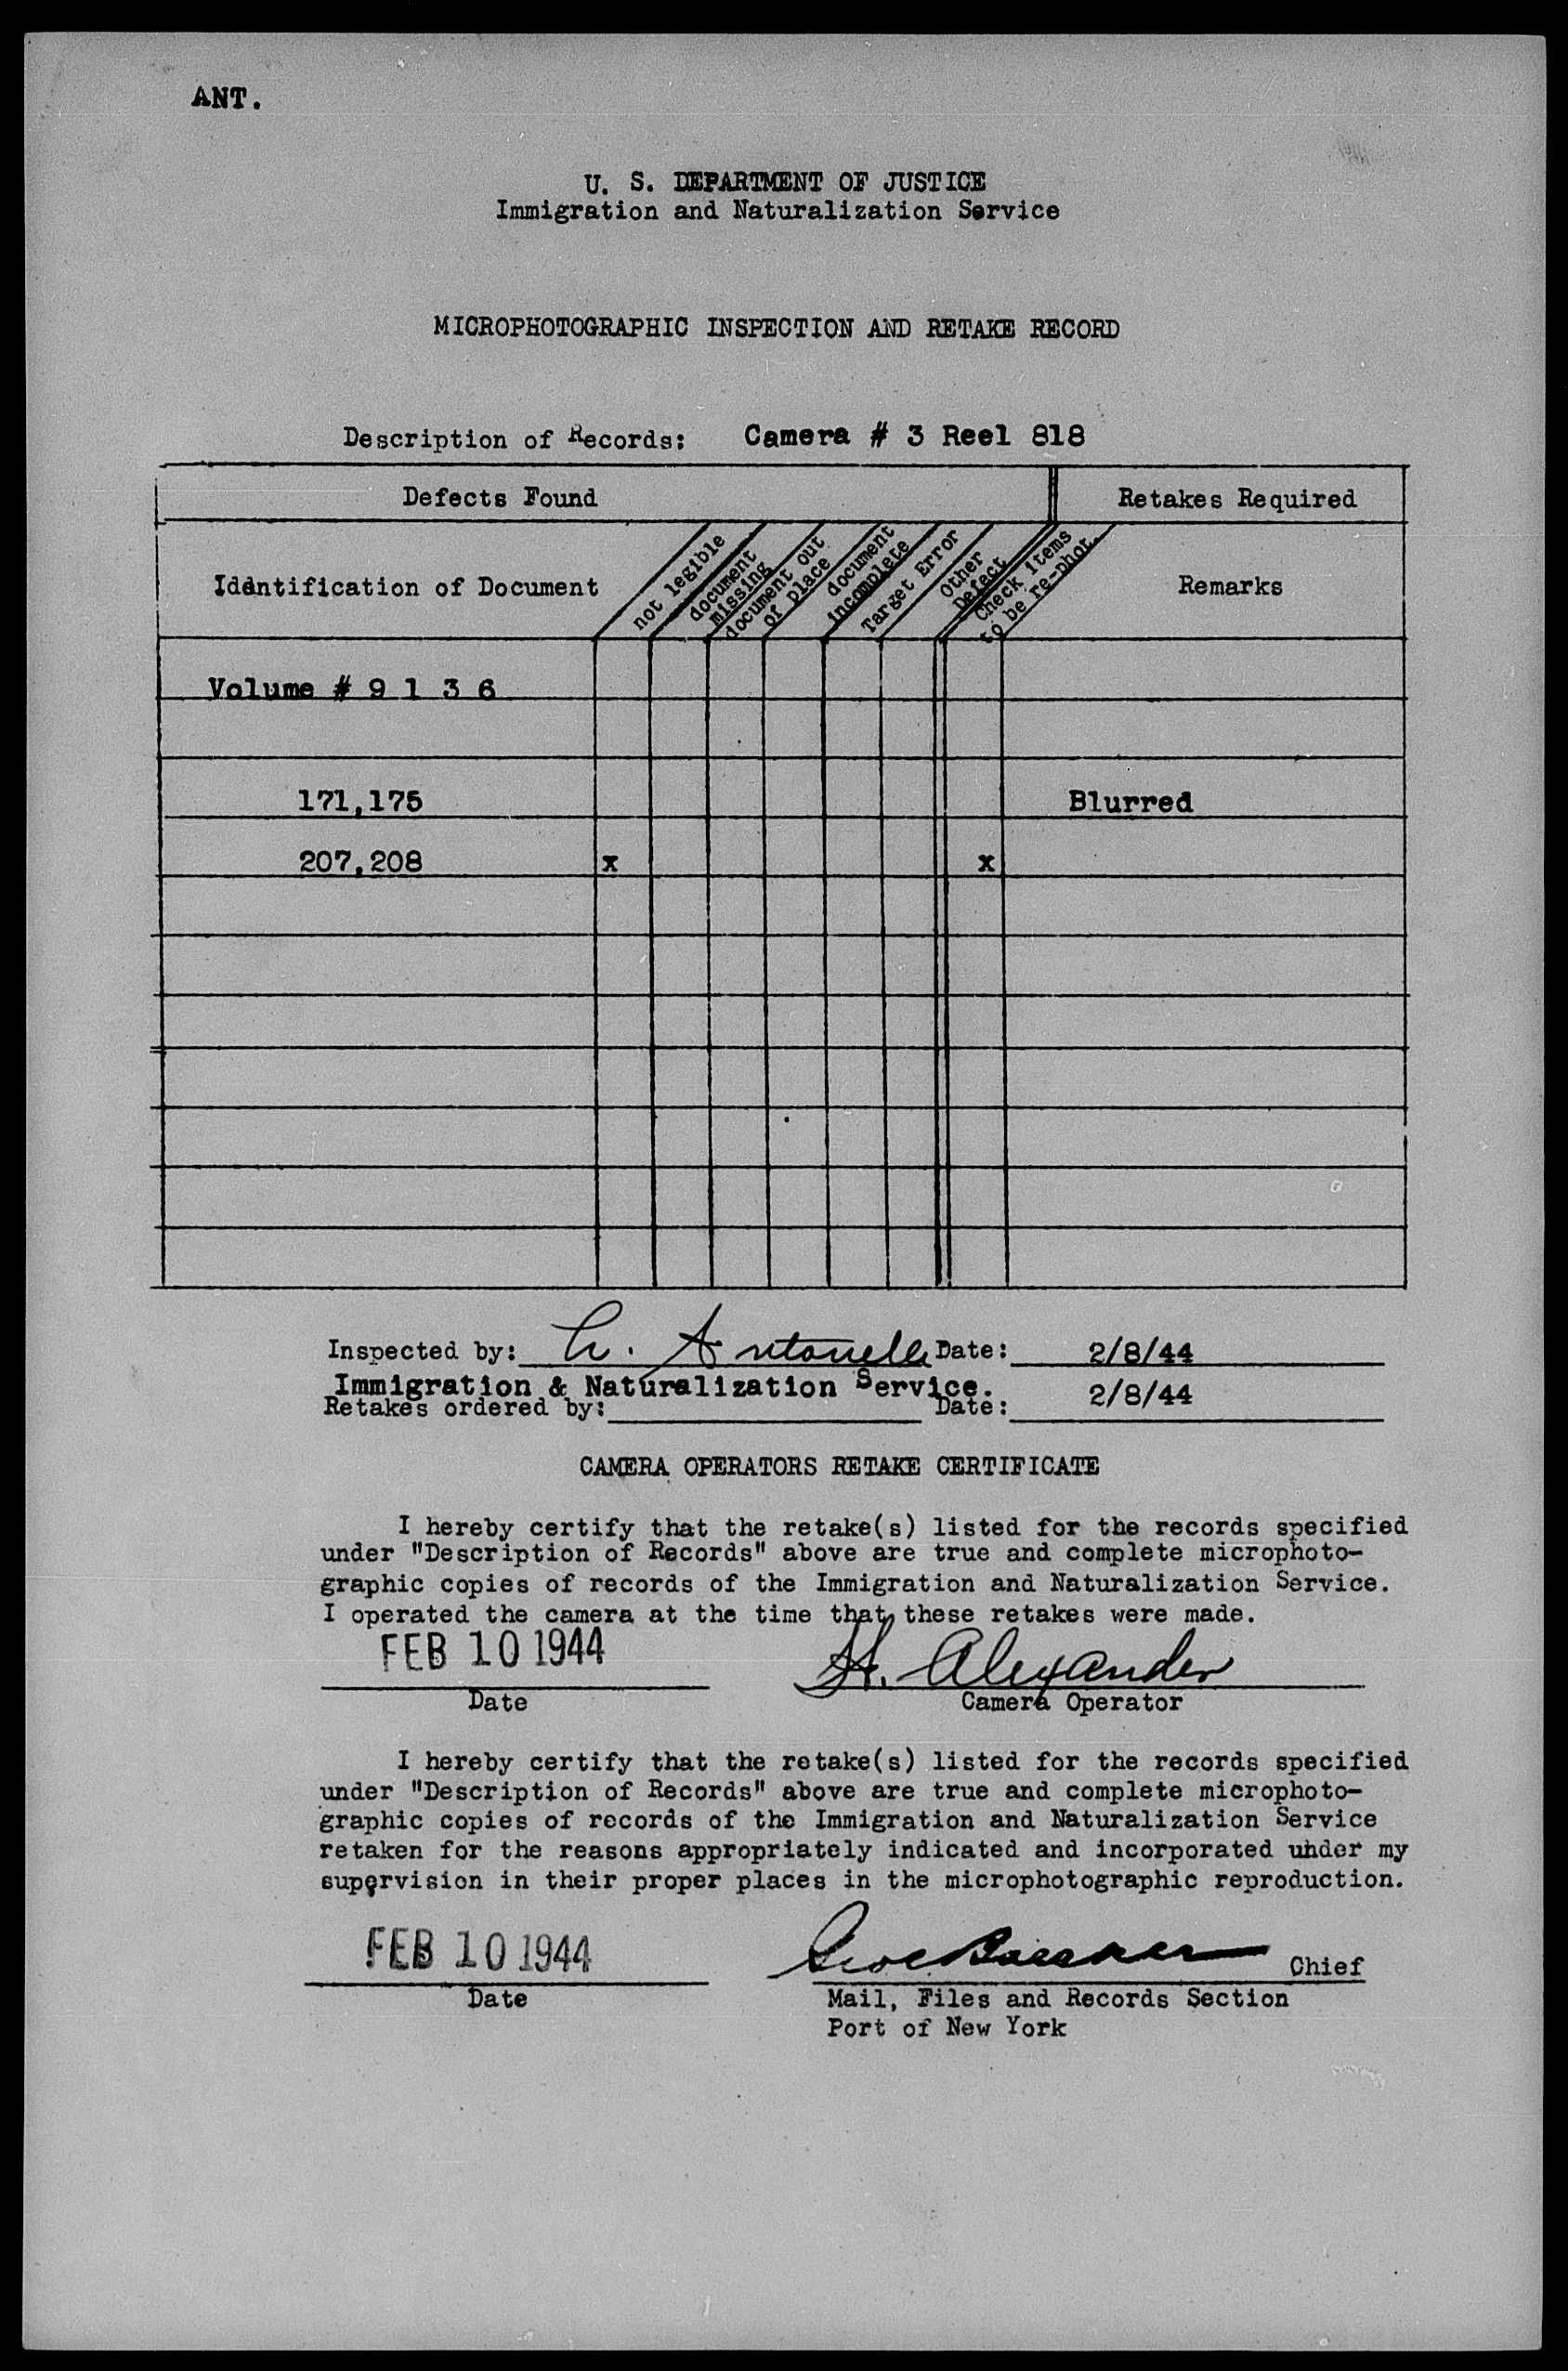 ANT.
U. S. DEPARTMENT OF JUSTICE
Immigration and Naturalization Service
MICROPHOTOGRAPHIC INSPECTION AND RETAKE RECORD
Description of Records: Camera # 3 Reel 818
Defects Found Retakes Required
Identification of Document
not legible
document missing
document out of place
document incomplete
Target Error
Other Defect
Check items to be re-phot.
Remarks
Volume # 9 1 3 6
171,175 Blurred
207,208 x x
Inspected by: Antonelli Date: 2/8/44
Immigration & Naturalization Service.
Retakes ordered by: Date: 2/8/44
CAMERA OPERATORS RETAKE CERTIFICATE
I hereby certify that the retake(s) listed for the records specified
under "Description of Records" above are true and complete microphoto-
graphic copies of records of the Immigration and Naturalization Service.
I operated the camera at the time that these retakes were made.
FEB 10 1944 H. Alexander
Date Camera Operator
I hereby certify that the retake(s) listed for the records specified
under "Description of Records" above are true and complete microphoto-
graphic copies of records of the Immigration and Naturalization Service
retaken for the reasons appropriately indicated and incorporated under my
supervision in their proper places in the microphotographic reproduction.
FEB 10 1944 Chief
Date Mail, Files and Records Section
Port of New York